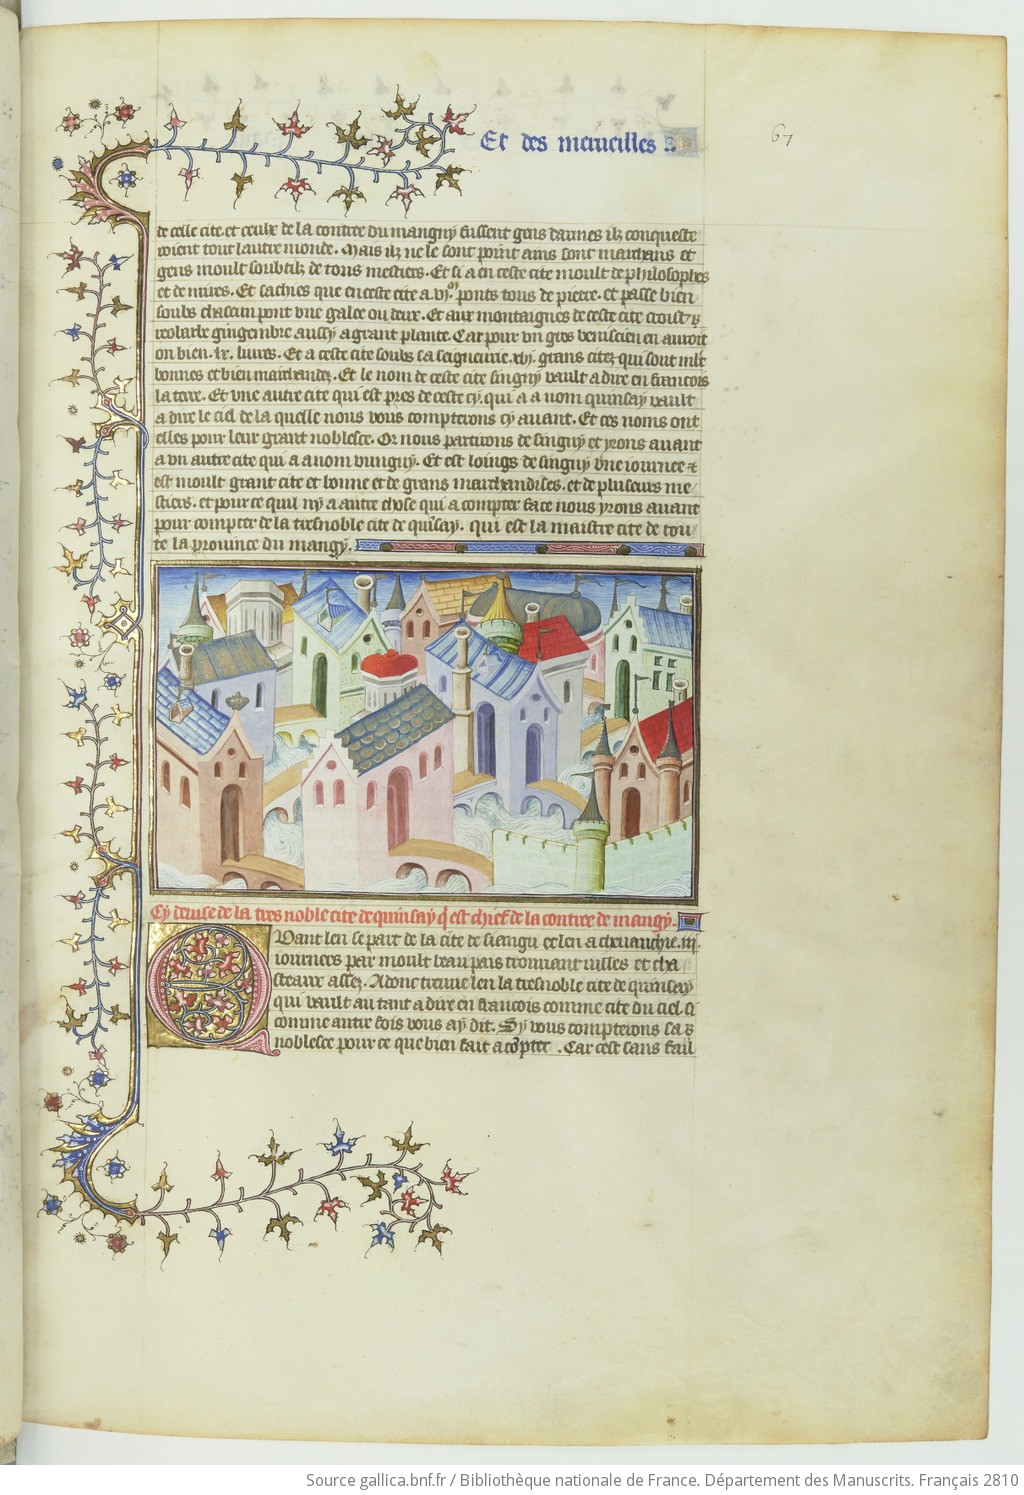 Et des merueilles
67
de celle cite. et ceulx de la contree du mangny fussent gens darmes ilz conqueste
roient tout lautre monde. Mais ilz ne le sont point ains sont marchans et
gens moult soubtilz de tous mestiers. Et si a en ceste cite moult de philosophes
et de mires. Et sachies que en ceste cite a .vj.m ponts tous de pierre. et passe bien
soubs chascun pont vne galee ou deux. Et aux montaignes de ceste cite croist
reobarbe gingembre aussy a grant plante. Car pour vn gros venissien en auroit
on bien .lx. liures. Et a ceste cite soubs sa seigneurie .xvj. grans citez qui sont mlt
bonnes et bien marchandez. Et le nom de ceste cite singuy vault a dire en francois
la terre. Et vne autre cite qui est pres de ceste cy. qui a a nom quinsay vault
a dire le ciel de la quelle nous vous compterons cy auant. Et ces noms ont
elles pour leur grant noblesce. Or nous partirons de singuy et yrons auant
a vn autre cite qui a a nom vunguy. Et est loings de singuy vne iournee et
est moult grant cite et bonne et de grans marchandises. et de pluseurs me
stiers. et pour ce quil ny a autre chose qui a compter face nous yrons auant
pour compter de la tresnoble cite de quisay. qui est la maistre cite de tou
te la prouince du mangy.
Cy deuise de la tres noble cite de quinsay q est chief de la contree de mangy.
Quant len se part de la cite de siangu et len a cheuauchie .iij.
iournees par moult beau pais trouuant villes et cha
steaux assez. Adonc treuue len la tresnoble cite de quinsay
qui vault autant a dire en francois comme cite du ciel. si
comme autre fois vous ay dit. Sy vous compterons sa
noblesce pour ce que bien fait a compter . Car cest sans fail
Source gallica.bnf.fr / Bibliothèque nationale de France. Département des Manuscrits. Français 2810